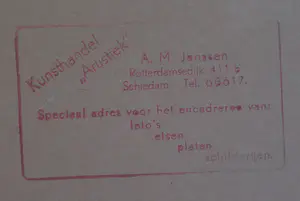 Kunsthandel
„Artistiek"
A. M. Janssen
Rotterdamsedijk 411
Schiedam Tel. 63617.
Speciaal adres voor het encadreren van:
foto's
etsen
platen
schilderijen.